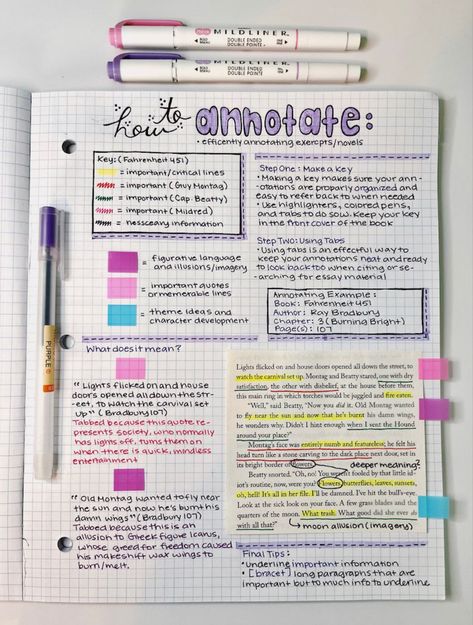 MILDLINER
DOUBLE ENDED
DOUBLE POINTE
MILDLINER
DOUBLE ENDED
DOUBLE POINTE
how to annotate:
• efficently annotating exerpts/novels
Key: (Fahrenheit 451)
= important/critical lines
= important (Guy Montag)
= important (Cap. Beatty)
= important (Mildred)
= nesscesary information
= figurative language
and illusions/imagery
= important quotes
or memerable lines
= theme ideas and
character development
Step One: Make a Key
• Making a key makes sure your ann-
otations are properly organized and
easy to refer back to when needed
• Use highlighters, colored pens,
and tabs to do sow. Keep your key
in the front cover of the book
Step Two: Using Tabs
• Using tabs is an effectful way to
keep your annotations neat and ready
to look back too when citing or se-
arching for essay material
Annotating Example:
Book: Fahrenheit 451
Author: Ray Bradbury
Chapter: 3 (Burning Bright)
Page(s): 107
PURPLE
What does it mean?
"Lights flicked on and house
doors opened all down the str-
eet, to watch the carnival set
up" (Bradbury 107)
Tabbed because this quote re-
presents society, who normally
has lights off, turns them on
when there is quick, mindless
entertainment
"Old Montag wanted to fly near
the sun and now he's burnt his
damn wings" (Bradbury 107)
Tabbed because this is an
allusion to Greek figure Icarus,
whose greed for freedom caused
his makeshift wax wings to
burn/melt.
Lights flicked on and house doors opened all down the street, to
watch the carnival set up. Montag and Beatty stared, one with dry
satisfaction, the other with disbelief, at the house before them,
this main ring in which torches would be juggled and fire eaten.
"Well," said Beatty, "Now you did it. Old Montag wanted
to fly near the sun and now that he's burnt his damn wings,
he wonders why. Didn't I hint enough when I sent the Hound
around your place?"
Montag's face was entirely numb and featureless; he felt his
head turn like a stone carving to the dark place next door, set in
its bright border of flowers.
deeper meaning?
Beatty snorted. "Oh, no! You weren't fooled by that little id-
iot's routine, now, were you? Flowers, butterflies, leaves, sunsets,
oh, hell! It's all in her file. I'll be damned. I've hit the bull's-eye.
Look at the sick look on your face. A few grass blades and the
quarters of the moon. What trash. What good did she ever do
with all that?"
moon allusion (imagery)
Final Tips:
• underline important information
• [bracet] long paragraphs that are
important but to much info to underline